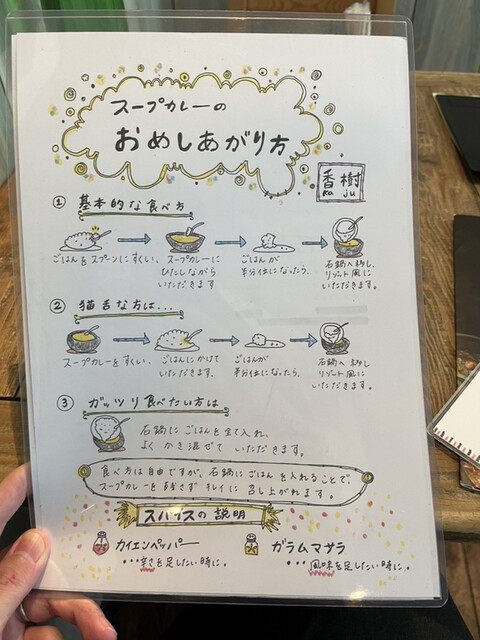 スープカレーの
おめしあがり方
香樹
ka ju
① 基本的な食べ方
ごはんをスプーンにすくい、
スープカレーに
ひたしながら
いただきます
ごはんが
半分位になったら、
石鍋へ移し
リゾット風に
いただきます。
② 猫舌な方は...
スープカレーをすくい、
ごはんにかけて
いただきます。
ごはんが
半分位になったら、
石鍋へ移し
リゾット風に
いただきます。
③ ガッツリ食べたい方は
石鍋にごはんを全て入れ、
よくかき混ぜていただきます。
食べ方は自由ですが、石鍋にごはんを入れることで、
スープカレーを残さずキレイに召し上がれます。
スパイスの説明
カイエンペッパー
・・・辛さを足したい時に。
ガラムマサラ
・・・風味を足したい時に。